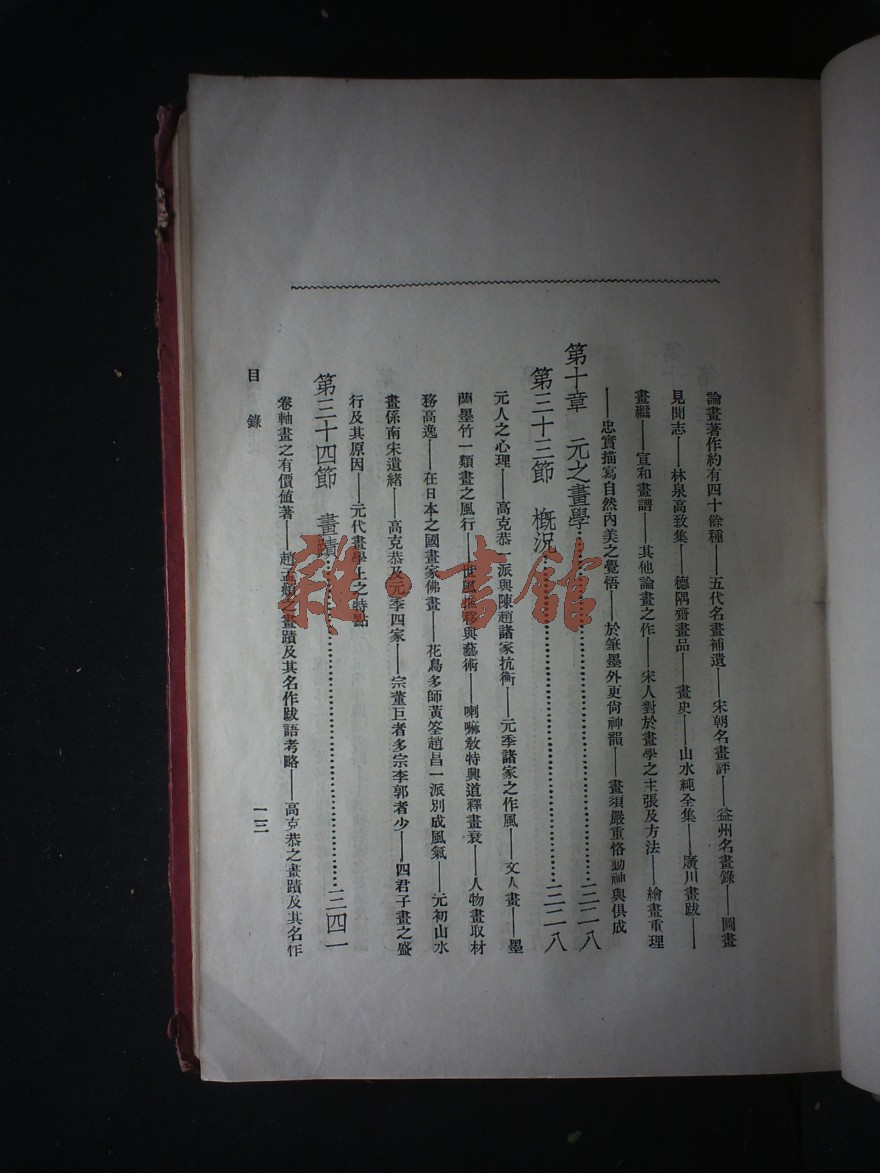 論畫著作約有四十餘種——五代名畫補遺——宋朝名畫評——益州名畫錄——圖畫
見聞志——林泉高致集——德隅齋畫品——畫史——山水純全集——廣川畫跋——
畫繼——宣和畫譜——其他論畫之作——宋人對於畫學之主張及方法——繪畫重理
——忠實描寫自然內美之覺悟——於筆墨外更尙神韻——畫須嚴重恪勤神與俱成
第十章　元之畫學……三二八
第三十三節　概況……三二八
元人之心理——高克恭一派與陳趙諸家抗衡——元季諸家之作風——文人畫——墨
蘭墨竹一類畫之風行——世風推移與藝術——喇嘛敎特興道釋畫衰——人物畫取材
務高逸——在日本之國畫家佛畫——花鳥多師黃筌趙昌一派別成風氣——元初山水
畫係南宋遺緒——高克恭及元季四家——宗董巨者多宗李郭者少——四君子畫之盛
行及其原因——元代畫學上之特點
第三十四節　畫蹟……三四一
卷軸畫之有價値著——趙孟頫之畫蹟及其名作跋語考略——高克恭之畫蹟及其名作
目錄
一三
雜·書館